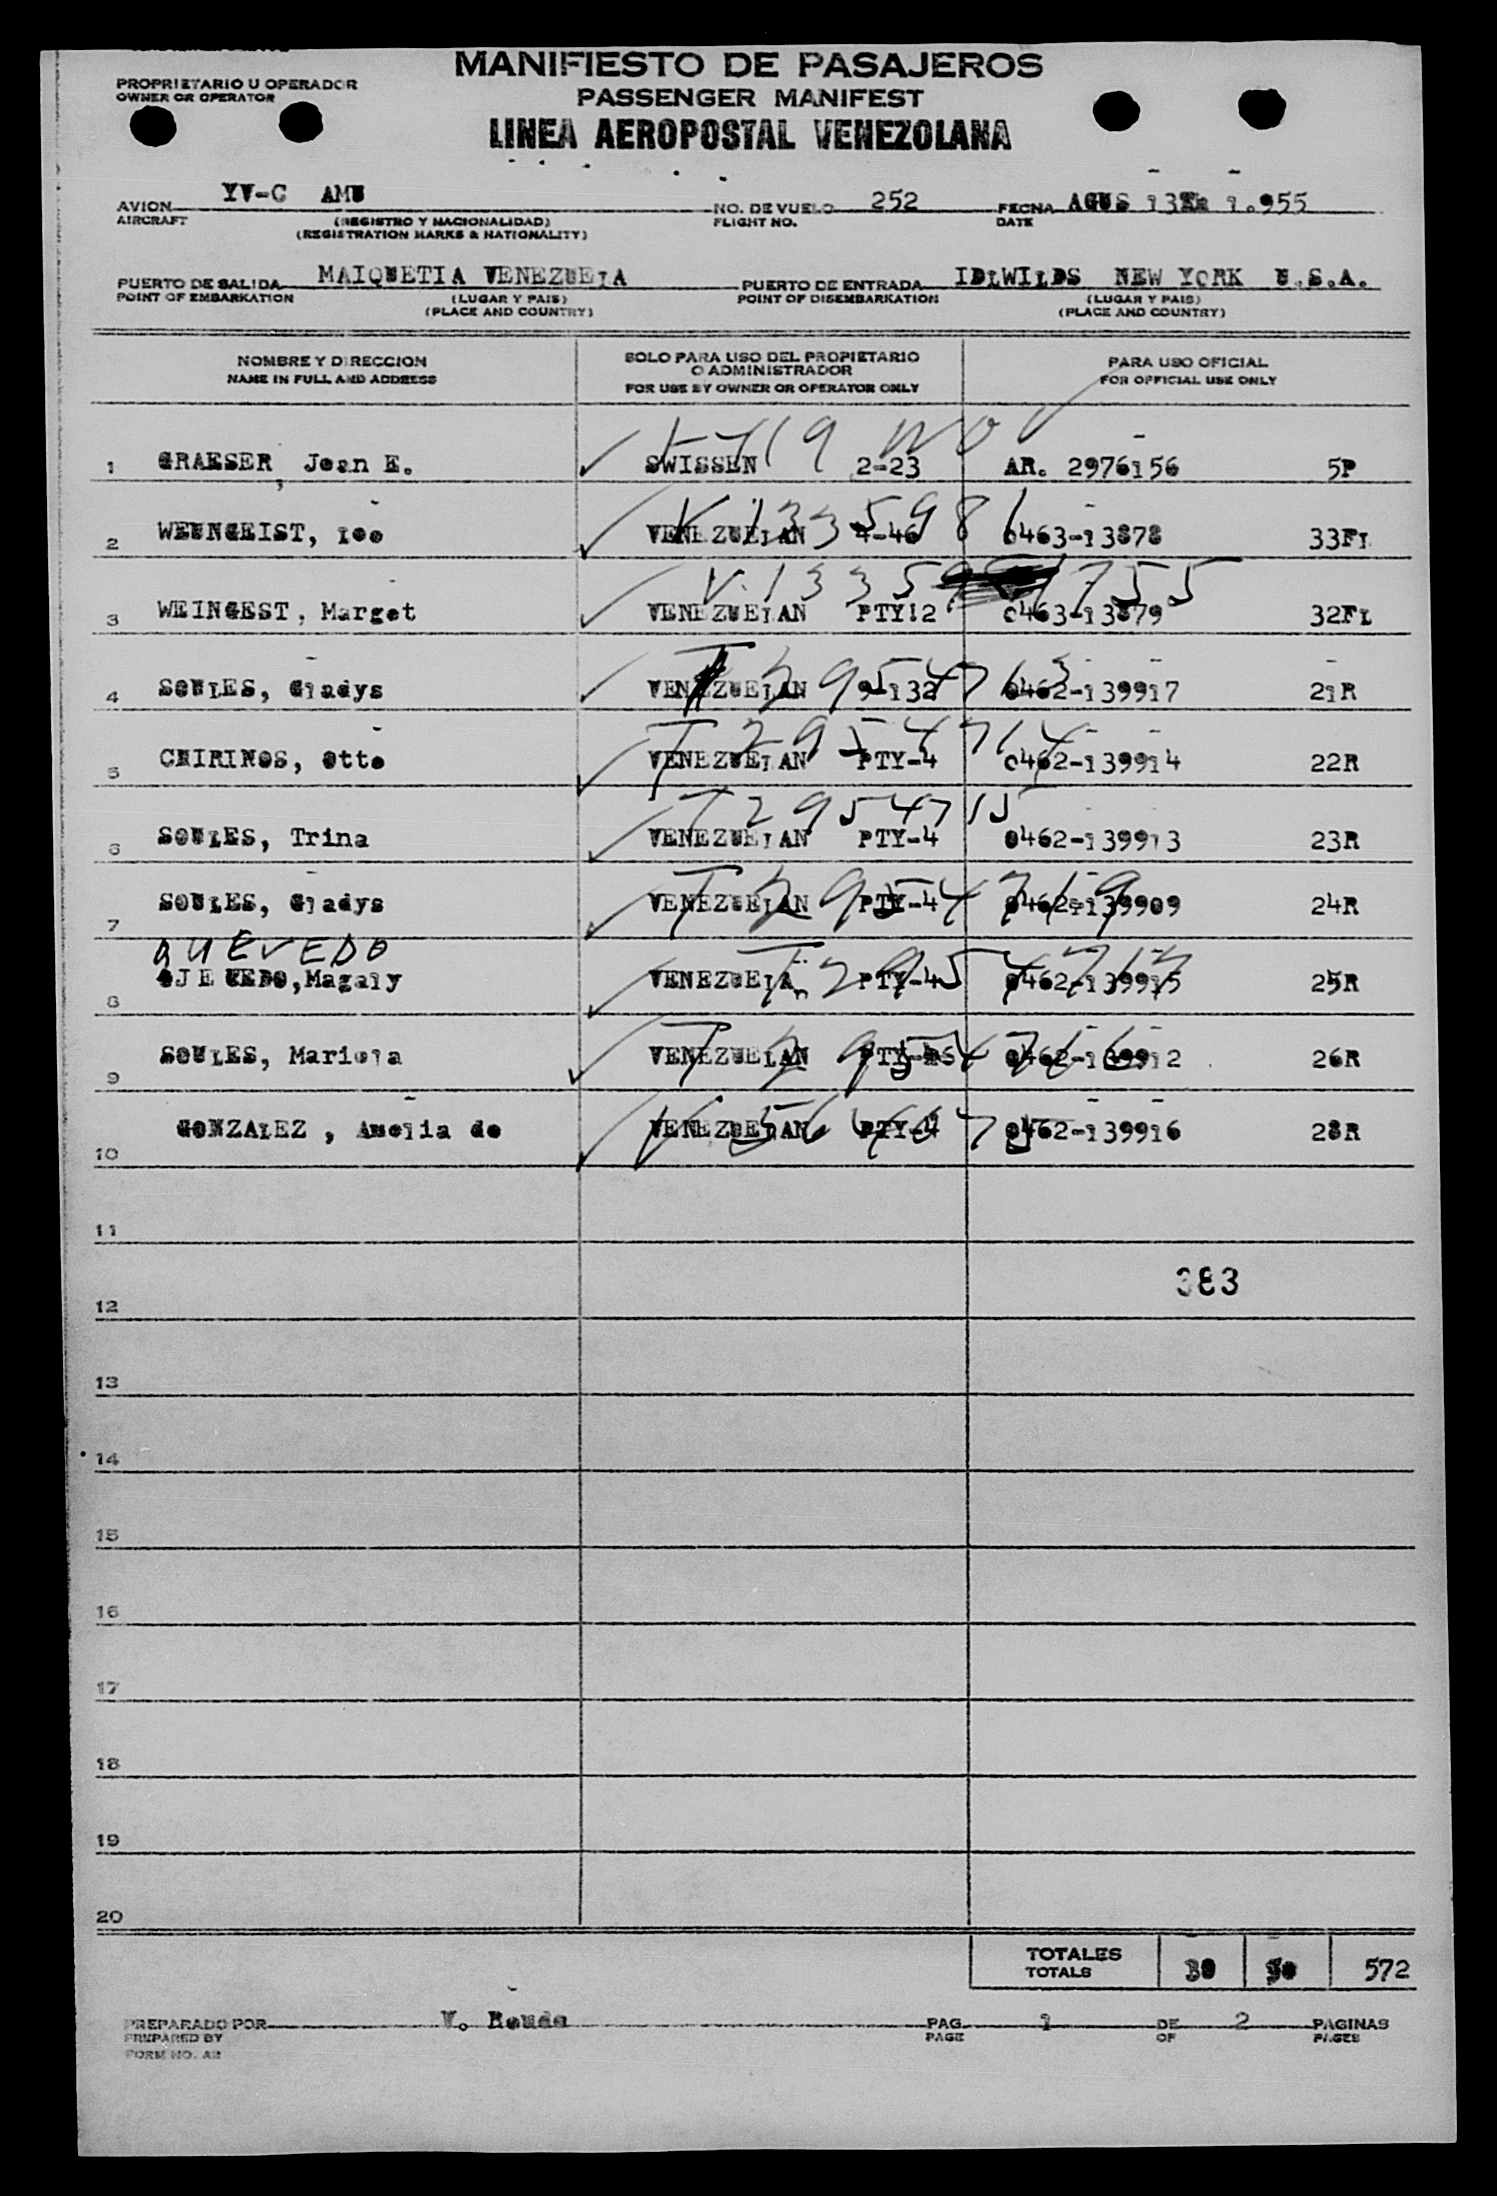 MANIFIESTO DE PASAJEROS
PROPRIETARIO U OPERADOR
OWNER OR OPERATOR
PASSENGER MANIFEST
LINEA AEROPOSTAL VENEZOLANA
AVION YV-C AMU NO. DE VUELO 252 FECHA AGUS 13 1.955
AIRCRAFT (REGISTRO Y NACIONALIDAD) FLIGHT NO. DATE
(REGISTRATION MARKS & NATIONALITY)
PUERTO DE SALIDA MAIQUETIA VENEZUELA PUERTO DE ENTRADA IDLWILDS NEW YORK U.S.A.
POINT OF EMBARKATION (LUGAR Y PAIS) POINT OF DISEMBARKATION (LUGAR Y PAIS)
(PLACE AND COUNTRY) (PLACE AND COUNTRY)
NOMBRE Y DIRECCION SOLO PARA USO DEL PROPIETARIO PARA USO OFICIAL
O ADMINISTRADOR
NAME IN FULL AND ADDRESS FOR USE BY OWNER OR OPERATOR ONLY FOR OFFICIAL USE ONLY
1 GRAESER, Jean E. SWISSEN 2-23 AR. 2976156 5P
V 1335981
2 WEUNGEIST, Leo VENEZUELAN 4-46 0463-13878 33FL
V.1335 1755
3 WEINGEST, Marget VENEZUELAN PTY!2 0463-13879 32FL
4 SOULES, Gladys VENEZUELAN 0462-139917 21R
T 2954714
5 CHIRINOS, Otto VENEZUELAN PTY-4 0462-139914 22R
T 2954715
6 SOULES, Trina VENEZUELAN PTY-4 0462-139913 23R
7 SOULES, Gladys VENEZUELAN PTY-4 0462-139909 24R
QUEVEDO
8 OJE UEDO,Magaly VENEZUELAn PTY-4 0462-139915 25R
9 SOULES, Mariela VENEZUELAN 0462-139912 26R
10 GONZALEZ , Amelia de VENEZUELAN PTY-4 0462-139916 28R
11
383
12
13
14
15
16
17
18
19
20
TOTALES 30 572
TOTALS
PREPARADO POR V. PAG. 1 DE 2 PAGINAS
PREPARED BY PAGE OF PAGES
FORM NO. AR